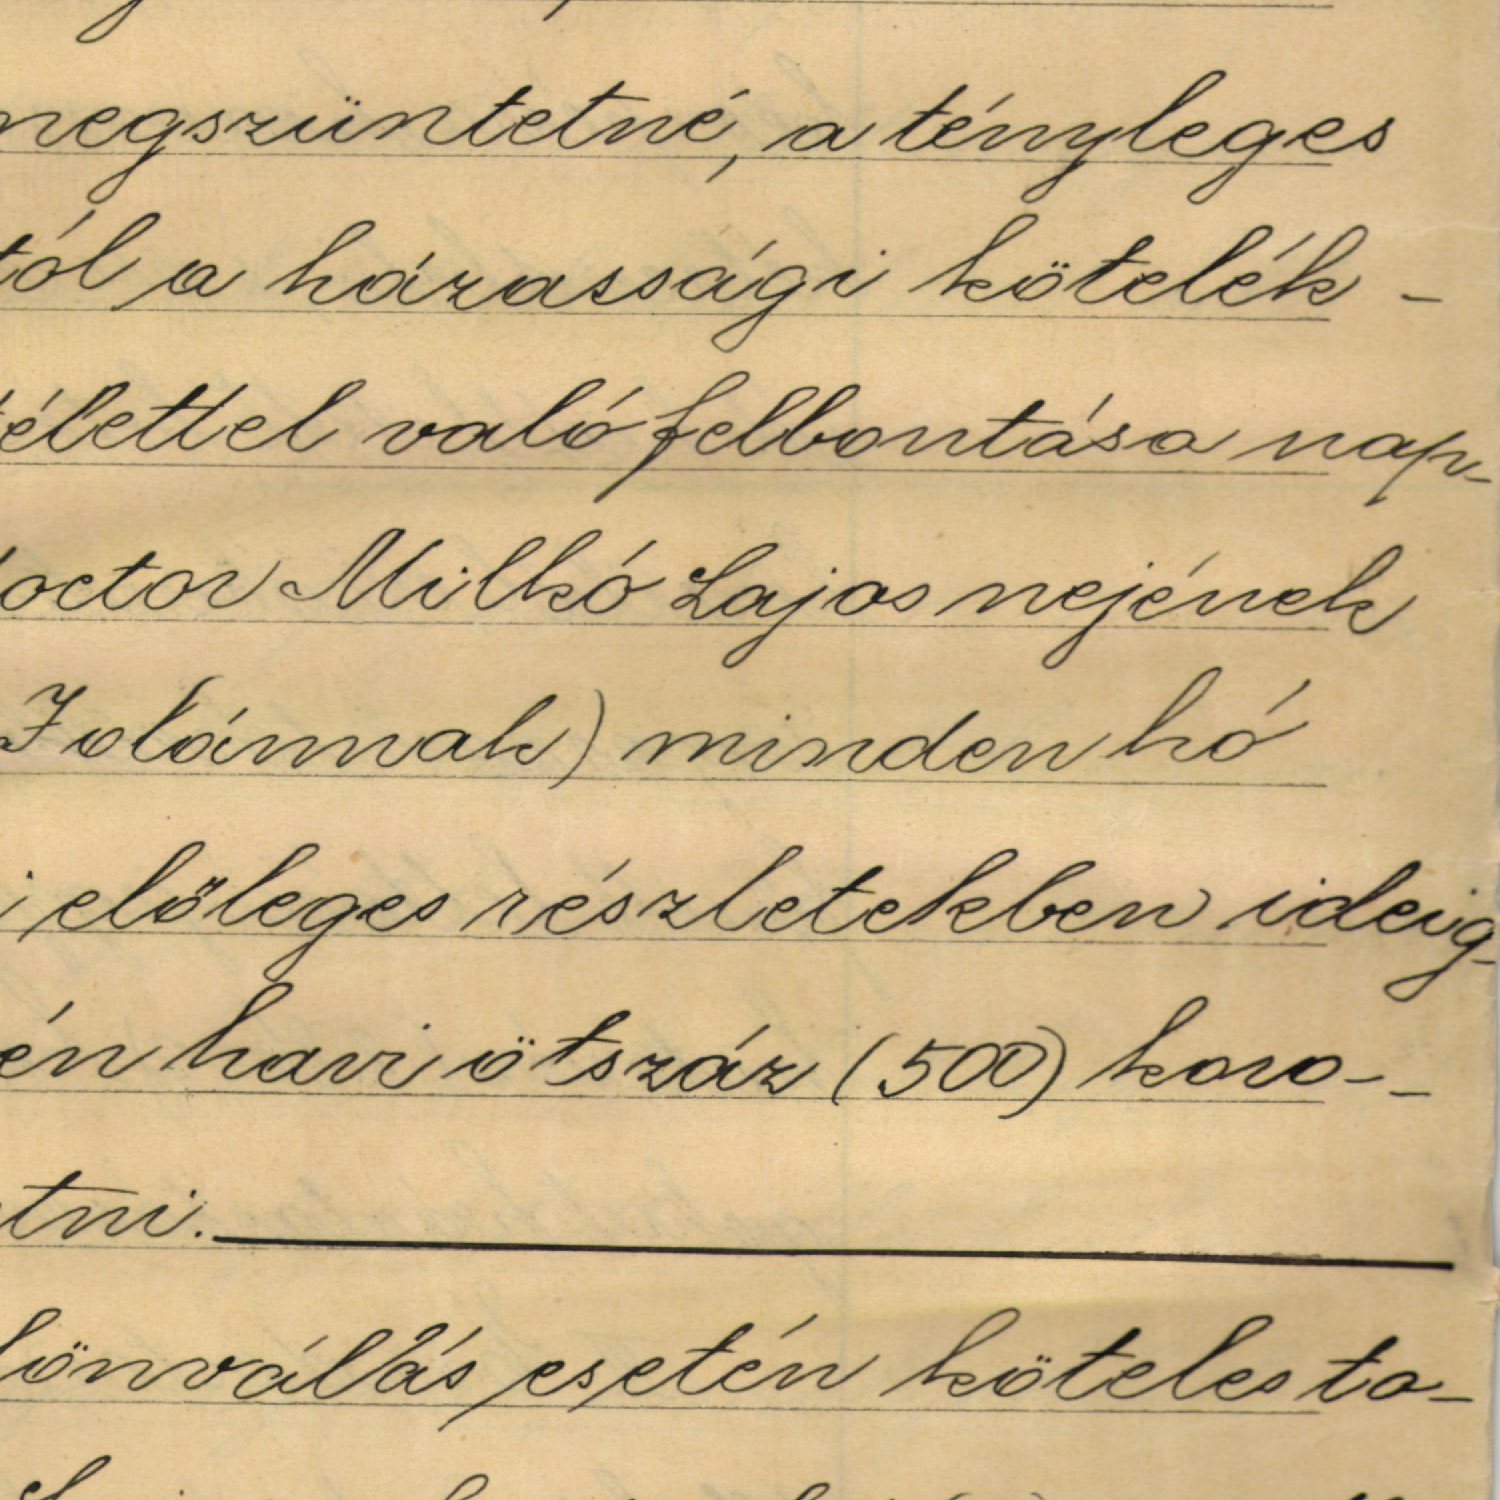 megszüntetné, a tényleges
tól a házassági kötelék -
télettel való felbontása nap-
doctor Milkó Lajos nejének
Jolánnak) minden hó
i előleges részletekben ideig-
én havi ötszáz (500) koro-
tni.
lönválás esetén köteles to-